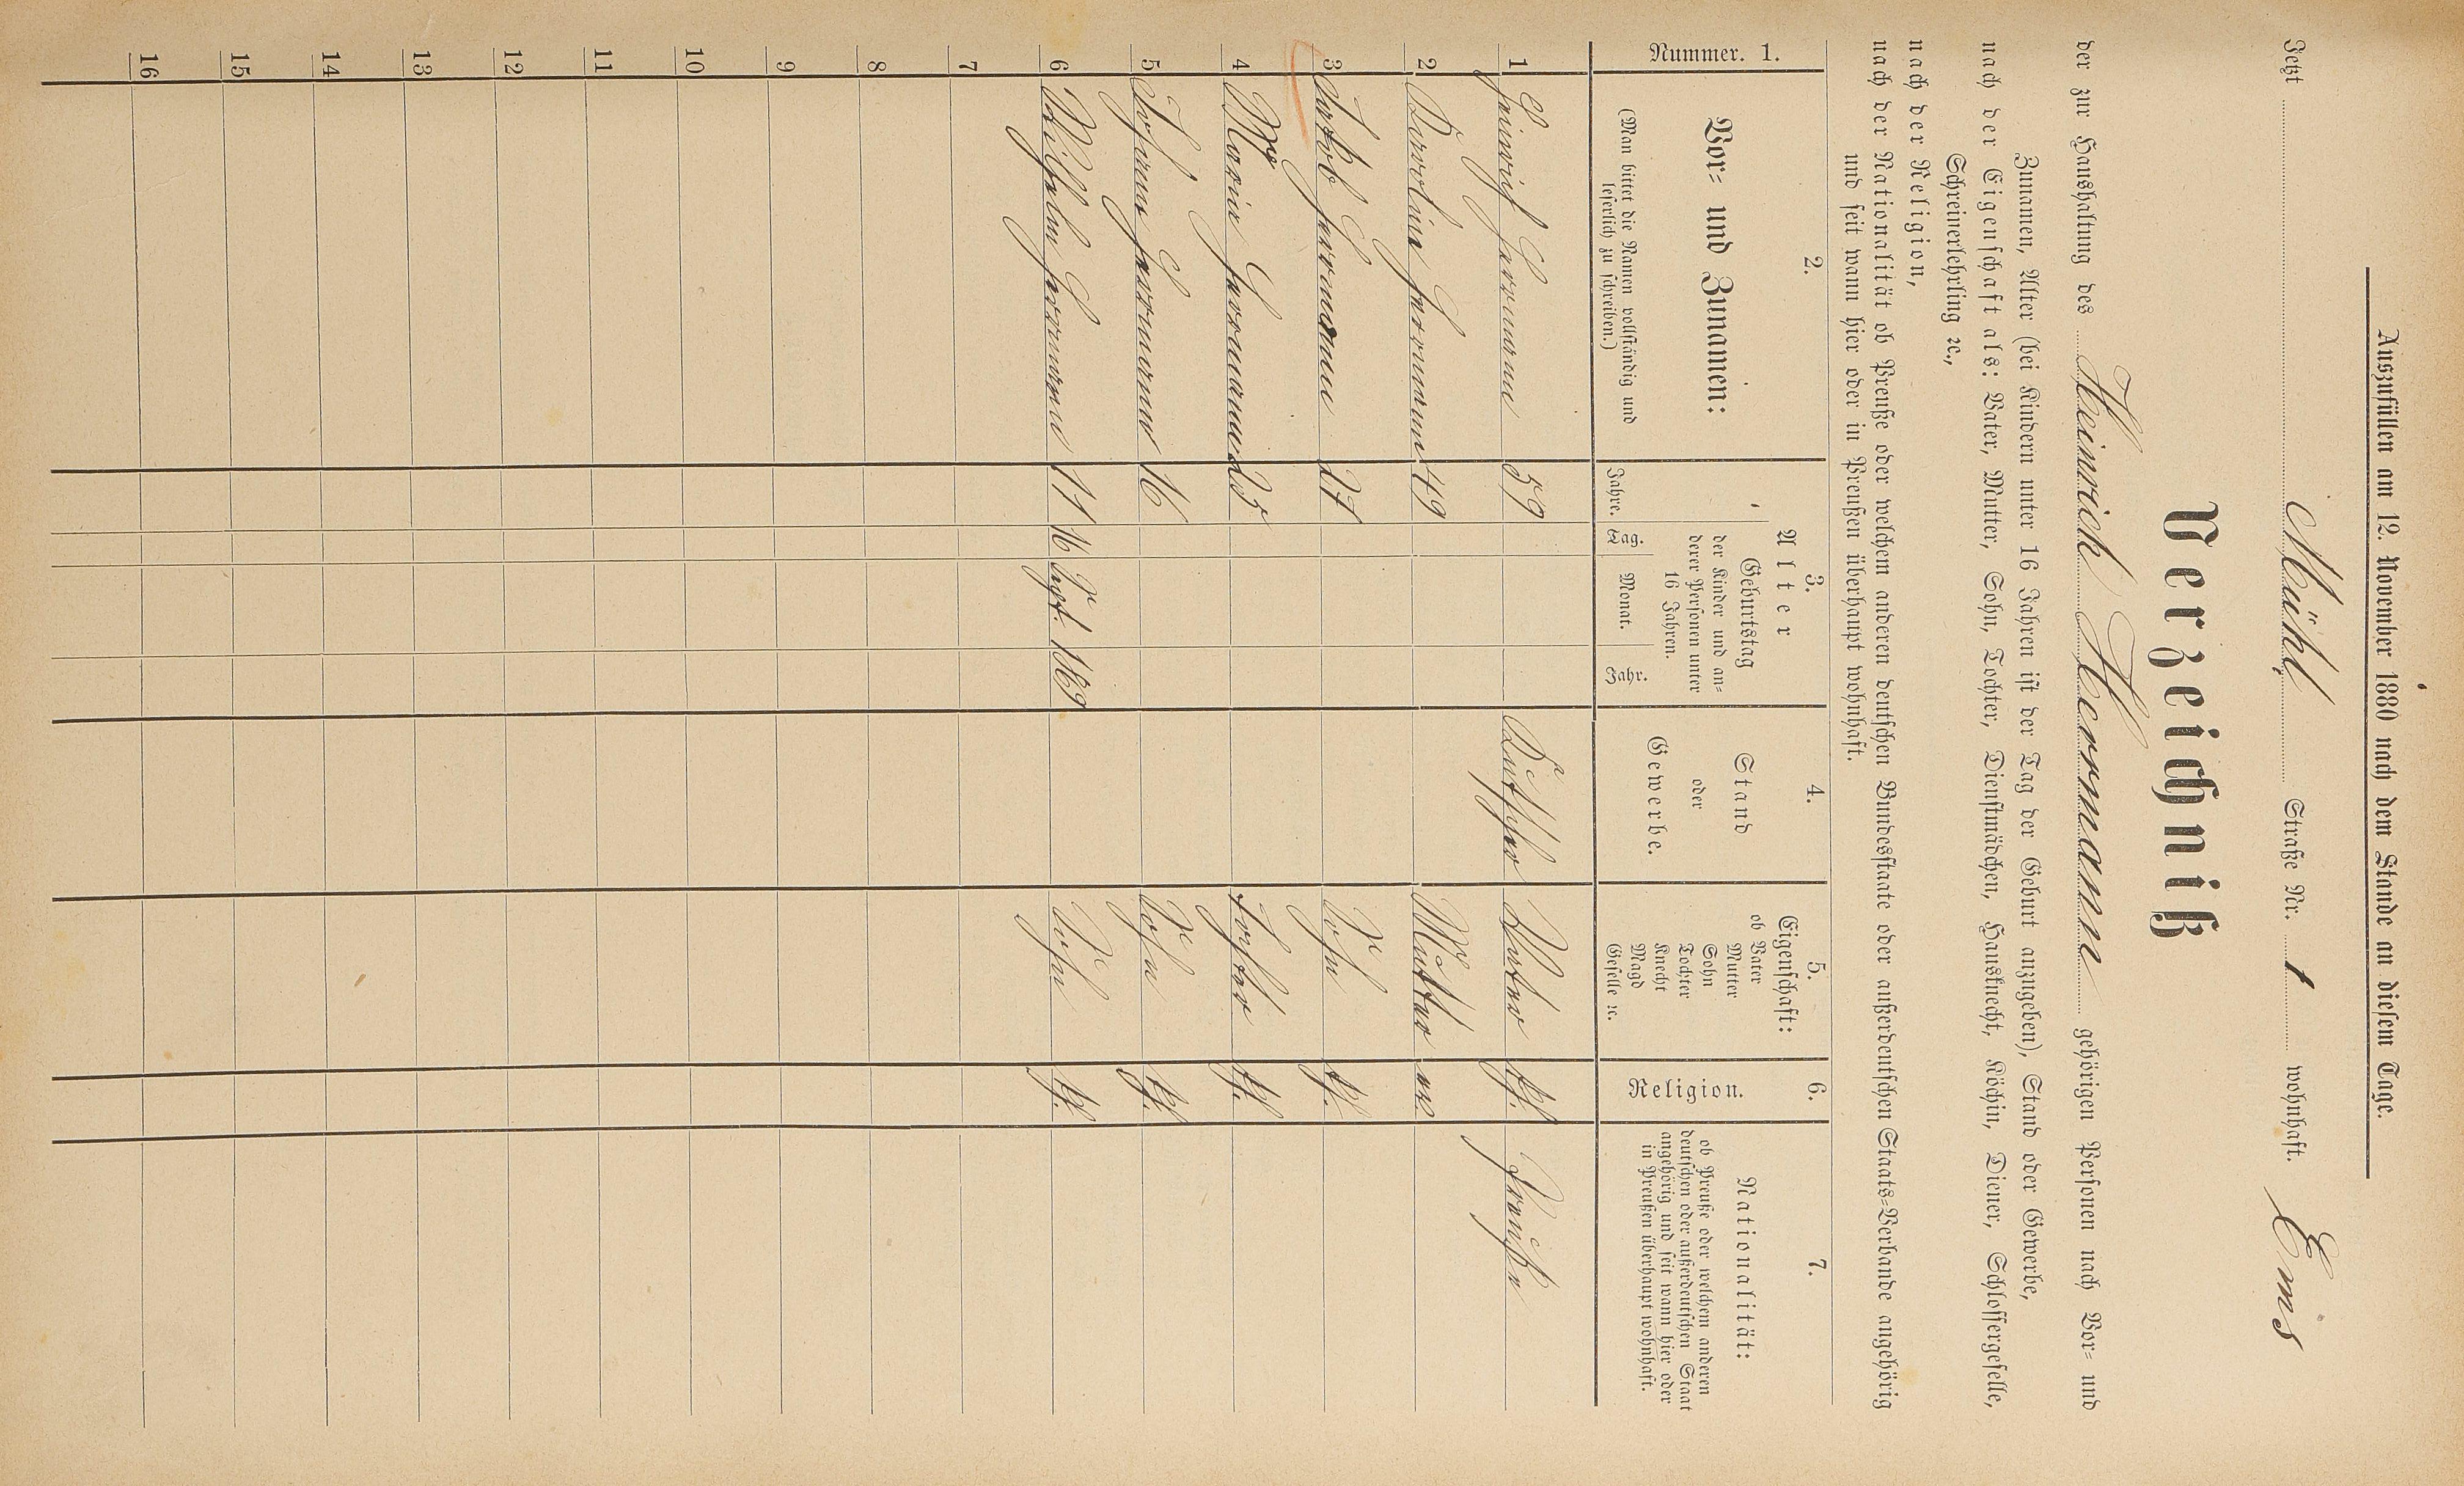 Auszufüllen am 12. November 1880 nach dem Stande an diesem Tage.
Jetzt Mühl Straße Nr. 1 wohnhaft. Ems
Verzeichniß
der zur Haushaltung des Heinrich Hermann gehörigen Personen nach Vor- und
Zunamen, Alter (bei Kindern unter 16 Jahren ist der Tag der Geburt anzugeben), Stand oder Gewerbe,
nach der Eigenschaft als: Vater, Mutter, Sohn, Tochter, Dienstmädchen, Hausknecht, Köchin, Diener, Schlossergeselle,
Schreinerlehrling ꝛc.,
nach der Religion,
nach der Nationalität ob Preuße oder welchem anderen deutschen Bundesstaate oder außerdeutschen Staats-Verbande angehörig
und seit wann hier oder in Preußen überhaupt wohnhaft.
Nummer. 1.
2.
Vor- und Zunamen:
(Man bittet die Namen vollständig und
leserlich zu schreiben.)
3.
Alter
Geburtstag
der Kinder und an-
derer Personen unter
16 Jahren.
Jahre. Tag. Monat. Jahr.
4.
Stand
oder
Gewerbe.
5.
Eigenschaft:
ob Vater
Mutter
Sohn
Tochter
Knecht
Magd
Geselle ꝛc.
6.
Religion.
7.
Nationalität:
ob Preuße oder welchem anderen
deutschen oder außerdeutschen Staat
angehörig und seit wann hier oder
in Preußen überhaupt wohnhaft.
1 Heinrich Herrmann 59 Vater kth. Preuße
2 Karoline Herrmann 49 Mutter ev.
3 Jakob Herrmann 27 Sohn kth.
4 Maria Herrmann 25 Tochter kth.
5 Johann Herrmann 16 Sohn kth.
6 Wilhelm Herrmann 11 16 Sept. 1869 Sohn kth.
7
8
9
10
11
12
13
14
15
16